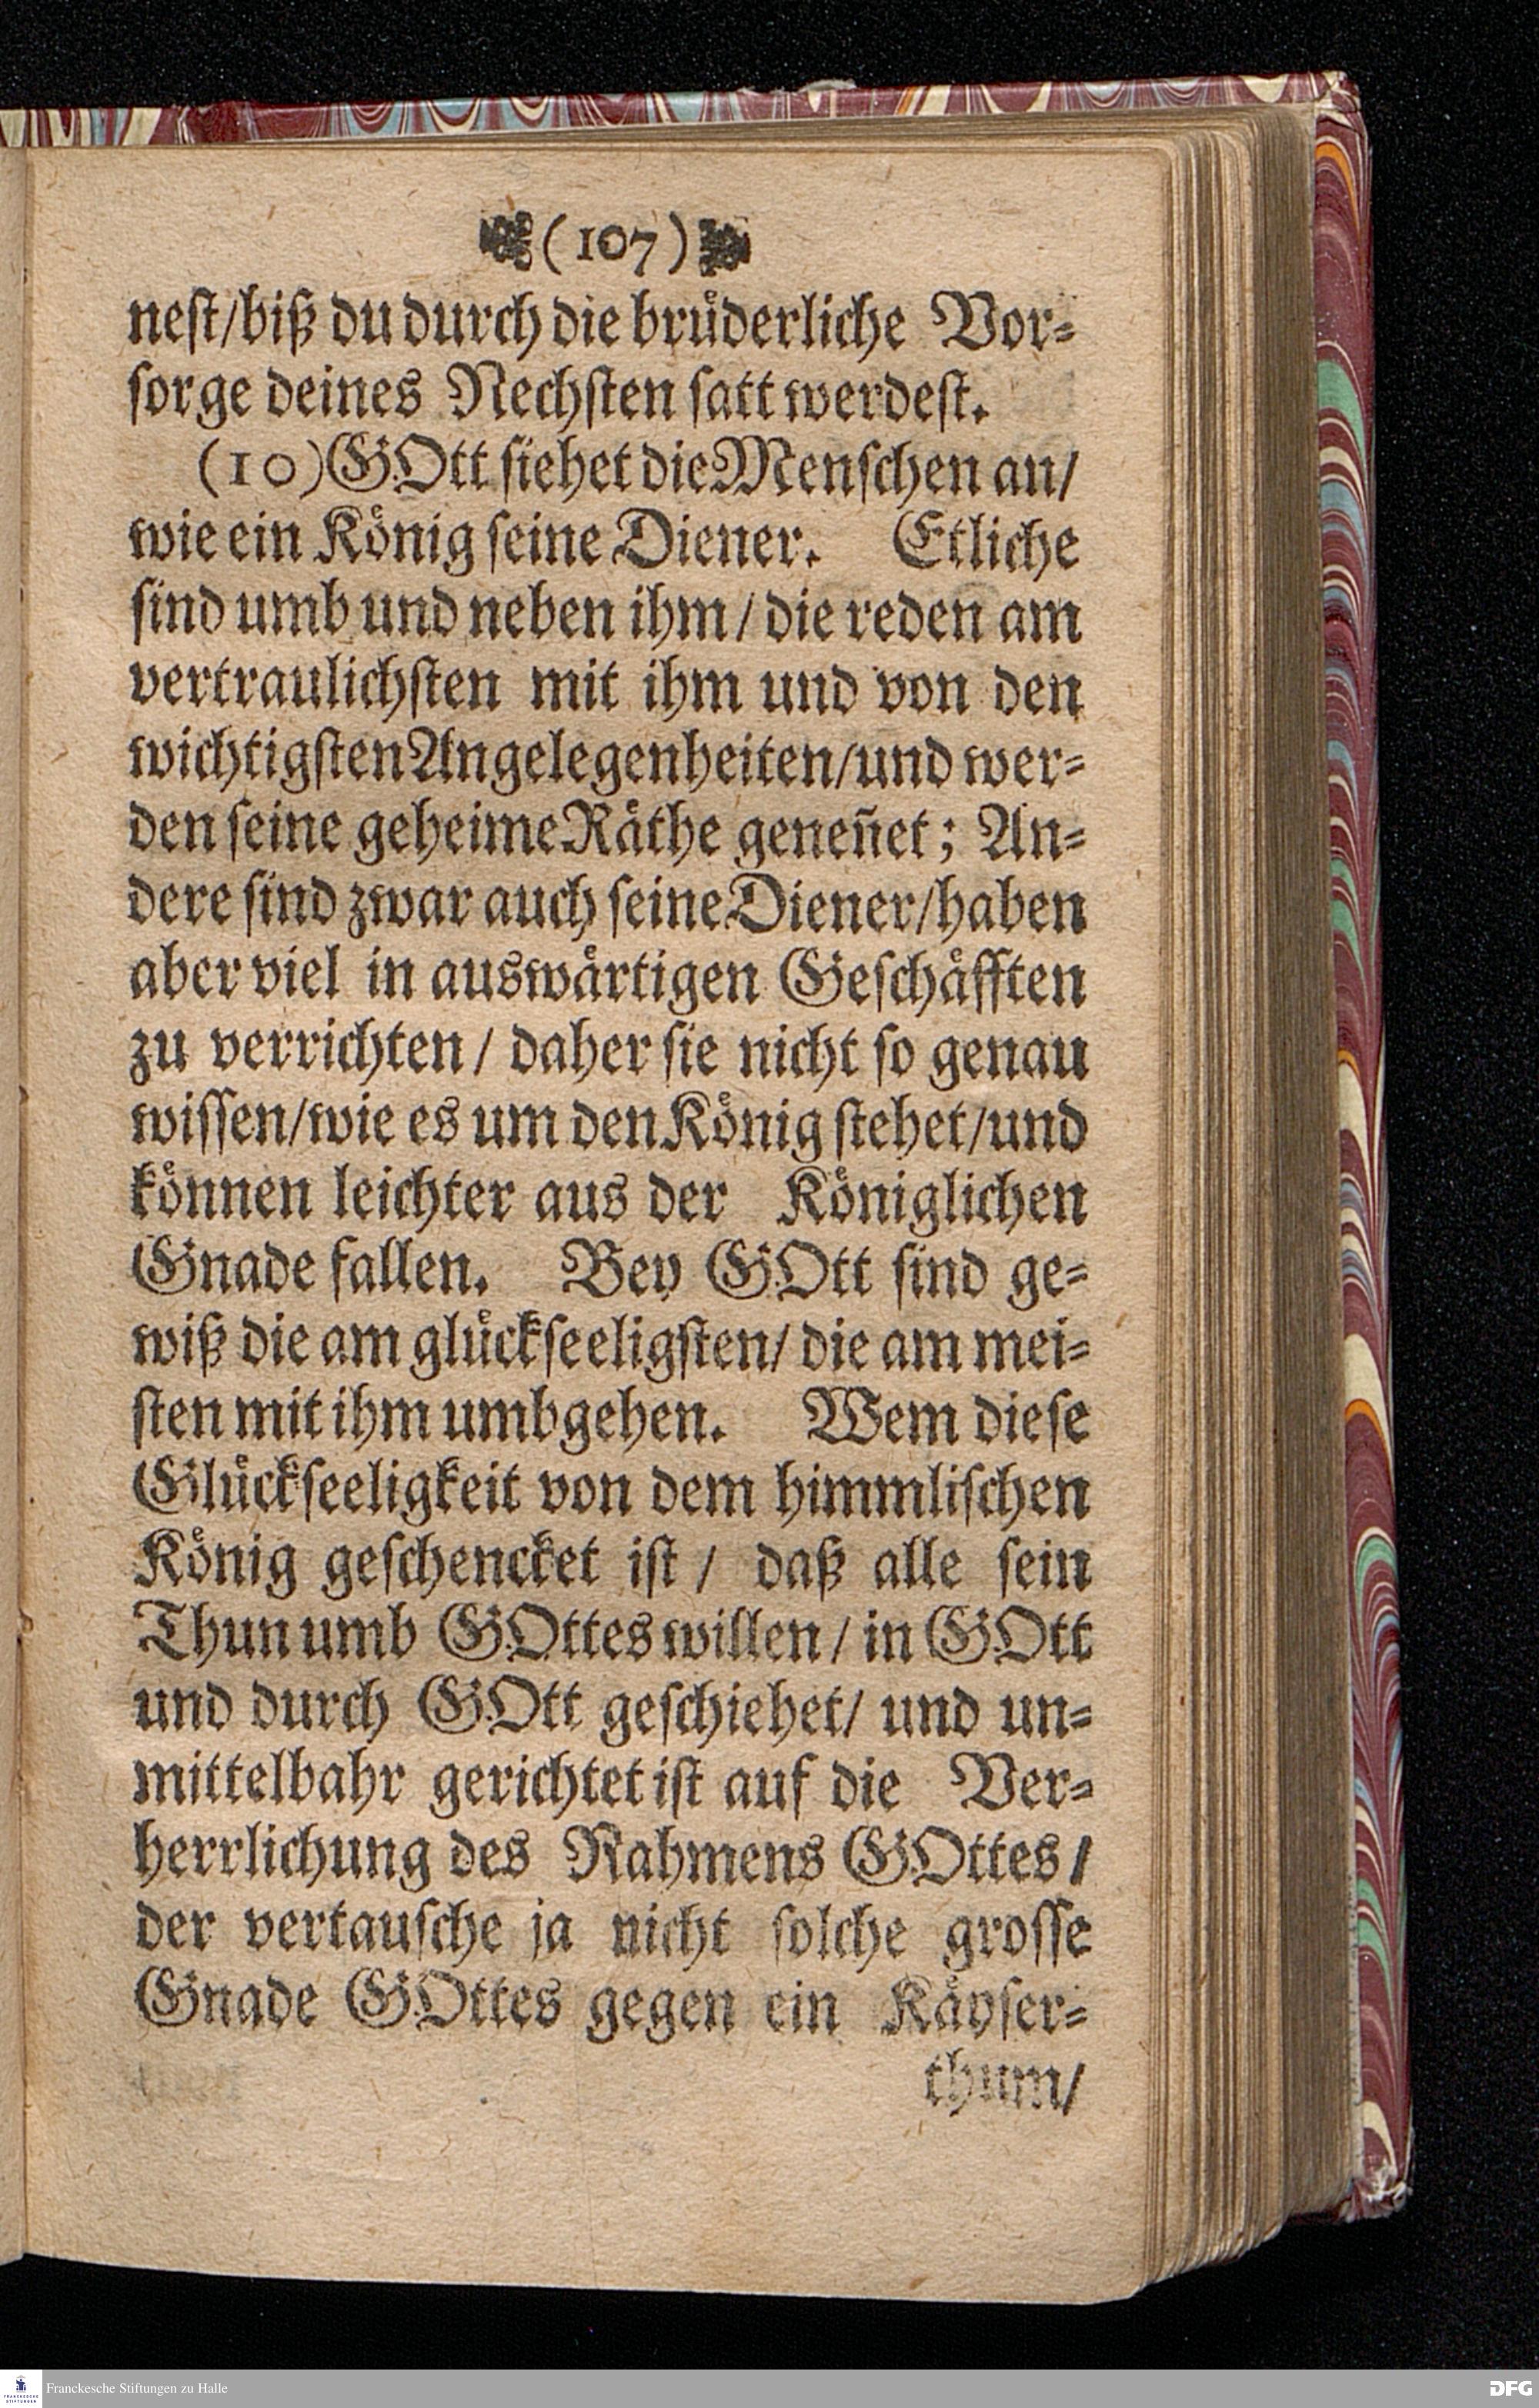 (107)
nest/biß du durch die brüderliche Vor-
sorge deines Nechsten satt werdest.
(10) GOtt siehet die Menschen an/
wie ein König seine Diener. Etliche
sind umb und neben ihm / die reden am
vertraulichsten mit ihm und von den
wichtigsten Angelegenheiten/und wer-
den seine geheime Räthe geneñet; An-
dere sind zwar auch seine Diener/haben
aber viel in auswärtigen Geschäfften
zu verrichten / daher sie nicht so genau
wissen/wie es um den König stehet/und
können leichter aus der Königlichen
Gnade fallen. Bey GOtt sind ge-
wiß die am glückseeligsten/ die am mei-
sten mit ihm umbgehen. Wem diese
Glückseeligkeit von dem himmlischen
König geschencket ist / daß alle sein
Thun umb GOttes willen / in GOtt
und durch GOtt geschiehet/ und un-
mittelbahr gerichtet ist auf die Ver-
herrlichung des Nahmens GOttes /
der vertausche ja nicht solche grosse
Gnade GOttes gegen ein Käyser-
thum/
FRANCKESCHE STIFTUNGEN
Franckesche Stiftungen zu Halle
DFG